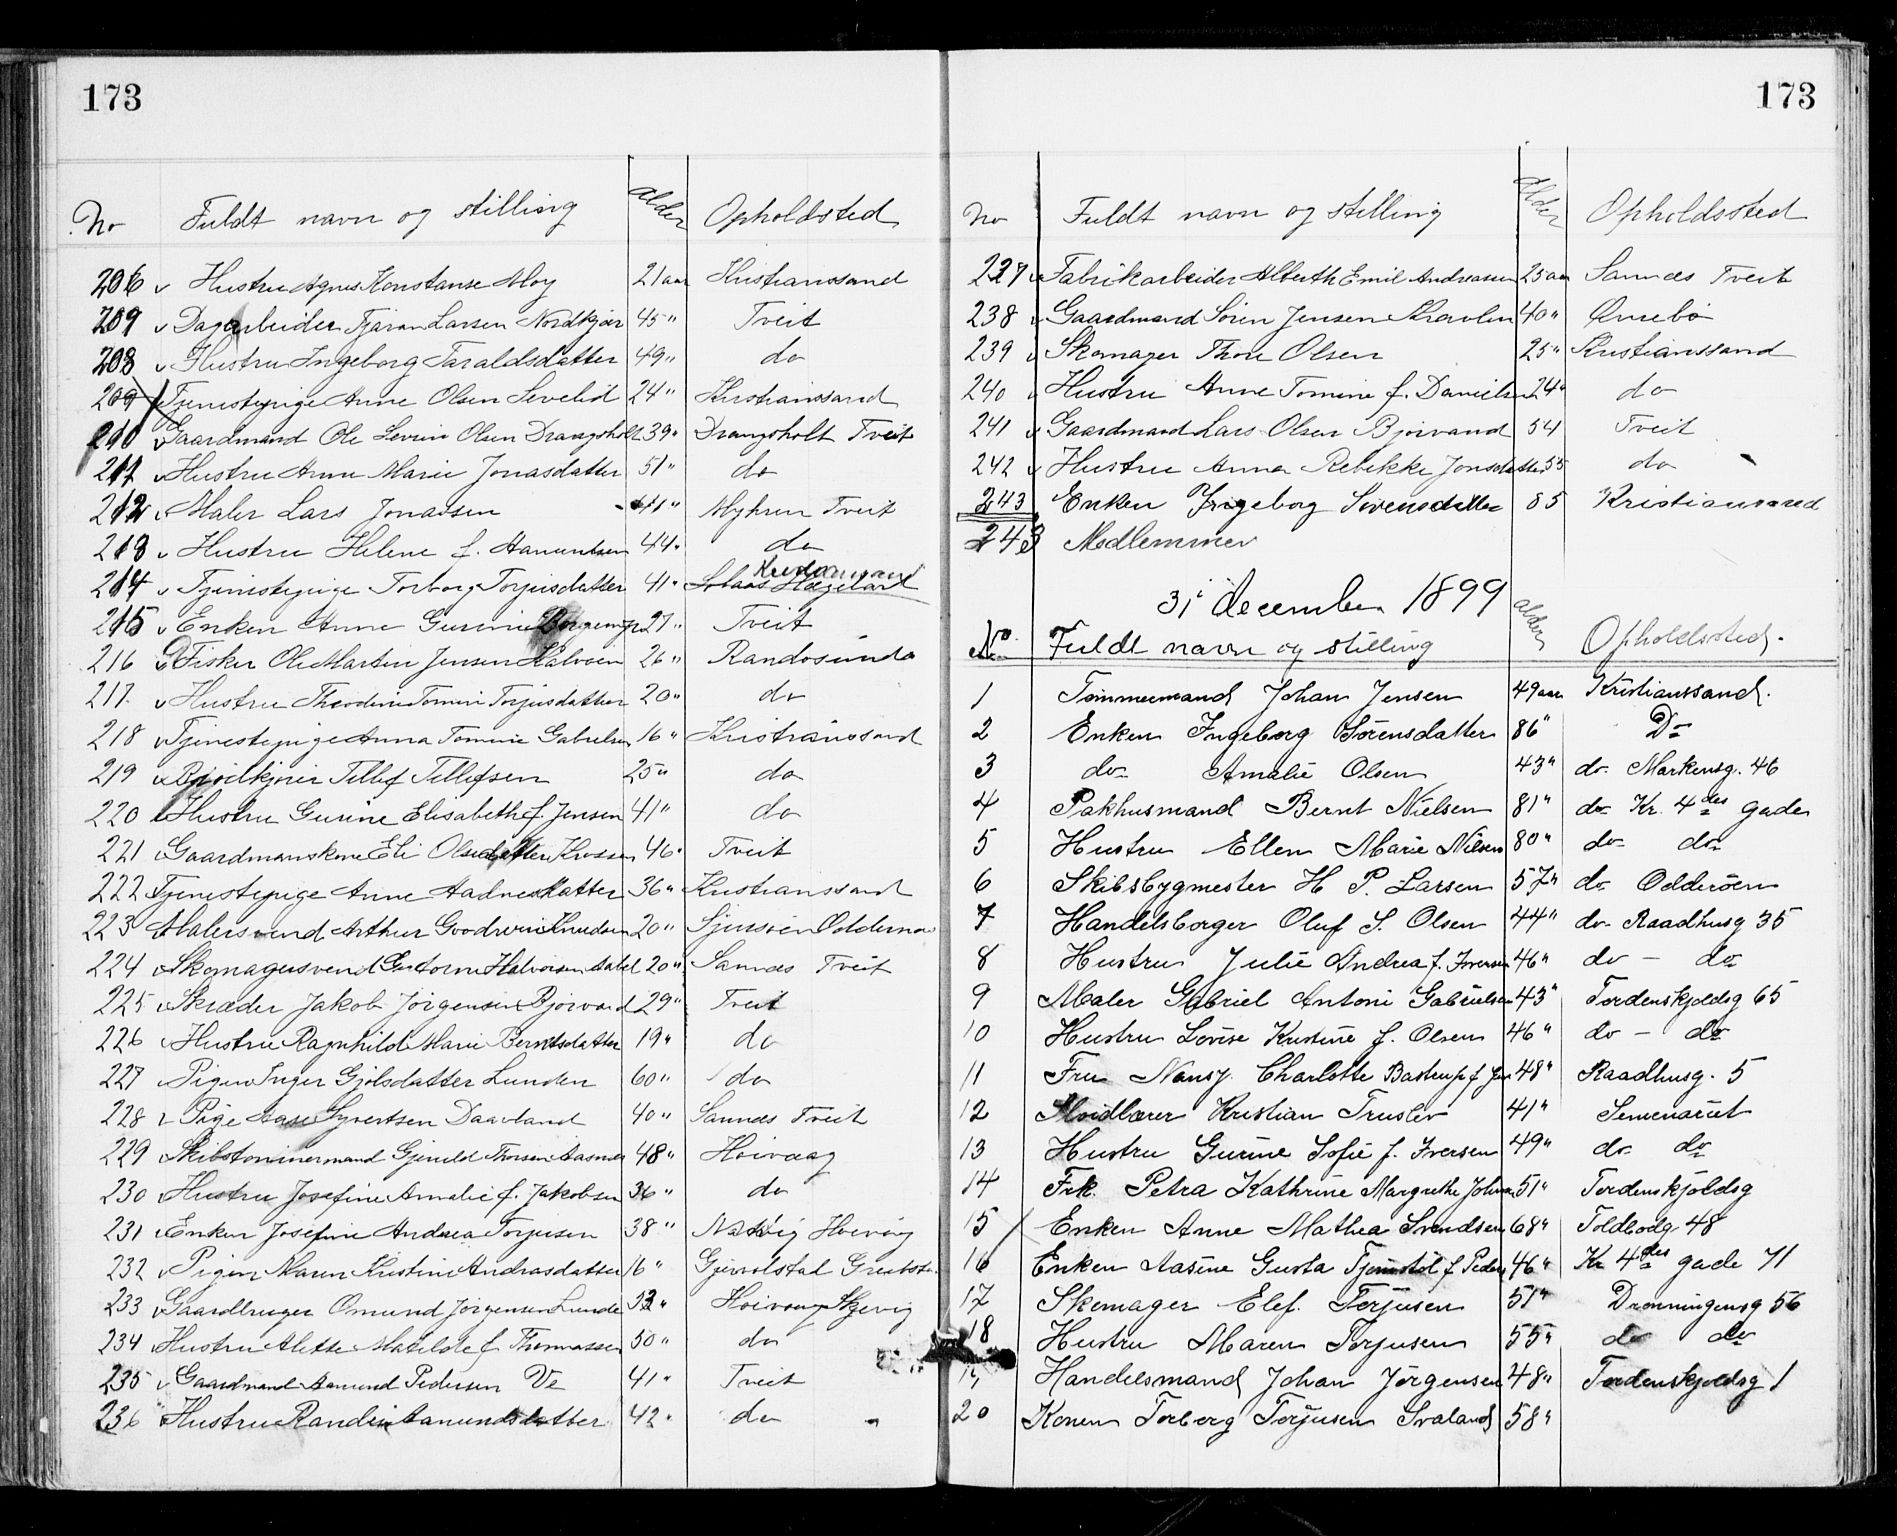 173
No Fuldt navn og stilling alder Opholdsted
206 v Hustru Agnes Konstanse Moy 21 aar Kristianssand
209 v Dagarbeider Tjäran Larsen Nordkjær 45 " Tveit
208 v Hustru Ingeborg Taraldsdatter 49 " do
209 Tjenestepige Anne Olsen Levelid 24 " Kristianssand
210 v Gaardmand Ole Severin Olsen Draugsholt 39 " Drangsholt Tveit
211 v Hustru Anne Marie Jonasdatter 51 " do
212 v Maler Lars Jonassen 41 " Myhren Tveit
213 v Hustru Helene f. Hanundsen 44 " do
214 v Tjenestepige Torborg Torjusdatter 41 " Hægeland
215 v Enken Anne Gurine 27 " Tveit
216 v Fisker Ole Martin Jensen Halvøen 26 " Randøsund
217. v Hustru Theodine Tomine Torjusdatter 20 " do
218 v Tjenestepige Anna Tomine Gabrielsen 16 " Kristianssand
219 v Tellef Tellefsen 25 " do
220 Hustru Gurine Elisabeth f. Jensen 41 " do
221 v Gaardmanskone Eli Olsdatter Krossen 46 " Tveit
222 Tjenestepige Anne Aadnesdatter 36 " Kristianssand
223 Malersvend Arthur Goodwin Knudsen 20 " Oddernes
224 v Skomagersvend Halvorsen 20 " Sannes Tveit
225 v Skræder Jakob Jörgensen Bjorvand 29 " Tveit
226 v Hustru Ragnhild Marie Berntsdatter 19 " do
227 v Pigen Inger Gjölsdatter Lunden 60 " do
228 v Pige Aase Syvertsen Daavland 40 " Sannes Tveit
229 v Skibstömmermand Gjeruld Thorsen Aasnes 48 " Höivaag
230 v Hustru Josefine Amalie f. Jakobsen 36 " do
231 v Enken Josefine Andrea Torjusen 38 " Höivåg
232 v Pigen Maren Kristine Andrasdatter 16 "
233 v Gaardbruger Omund Jörgensen Lunde 53 " Höivaag
234 Hustru Alette Matilde f Thomassen 50 " do
235 v Gaardmand Aamund Pedersen Ve 41 " Tveit
236 Hustru Randi Aanundsdatter 42 " do
173
No Fuldt navn og stilling Alder Opholdssted
237 v Fabrikarbeider Alberth Emil Andreassen 25 aar Sannes Tveit
238 v Gaardmand Sören Jensen 40 " Øvrebö
239 v Skomager Thore Olsen 25 " Kristianssand
240 v Hustru Anne Tomine f. Danielsen 24 " do
241 v Gaardmand Lars Olsen Bjorvand 54 Tveit
242 v Hustru Anna Rebekke Jonsdatter 55 do
243 Enken Ingeborg Sörensdatter 85 Kristianssand
243 Medlemmer
31' december 1899
No. Fuldt navn og stilling alder Opholdssted.
1 Tømmermand Johan Jensen 49 aar Kristianssand.
2 Enken Ingeborg Sörensdatter 86 " Do
3 do Amalie Olsen 43 " do. Markensg. 46
4 Pakhusmand Bernt Nielsen 81 " do Kr. 4des gade
5 Hustru Ellen Marie Nilsen 80 " do do
6 Skibsbygmester H P. Larsen 57 " do Odderöen
7 Handelsborger Oluf S. Olsen 44 " do. Raadhusg 35
8 Hustru Julie Andrea f. Iversen 46 " do — do
9 Maler Gabriel Antoni Gabrielsen 43 " Tordenskjoldsg 65
10 Hustru Lovise Kristine f. Olsen 46 " do — do
11 Fru Nansy Charlotte Bastrup f 48 " Raadhusg. 5
12 Kristian Truslev 41 "
13 Hustru Gurine Sofie f. Iversen 49 " do do
14 Frk. Petra Kathrine Margrethe 51 " Tordenskjoldsg
15 Enken Anne Mathea Svendsen 68 " Toldbodg 48
16 Enken Aasine Gusta Tjomstöl f Peders 46 " Kr 4des gade 71
17 Skomager Elef. Torjusen 51 " Dronningensg 56
18 Hustru Maren Torjusen 55 " do do
19 Handelsmand Johan Jörgensen 48 " Tordenskjoldsg 1
20 Konen Torborg Torjusen Svaland 58 "